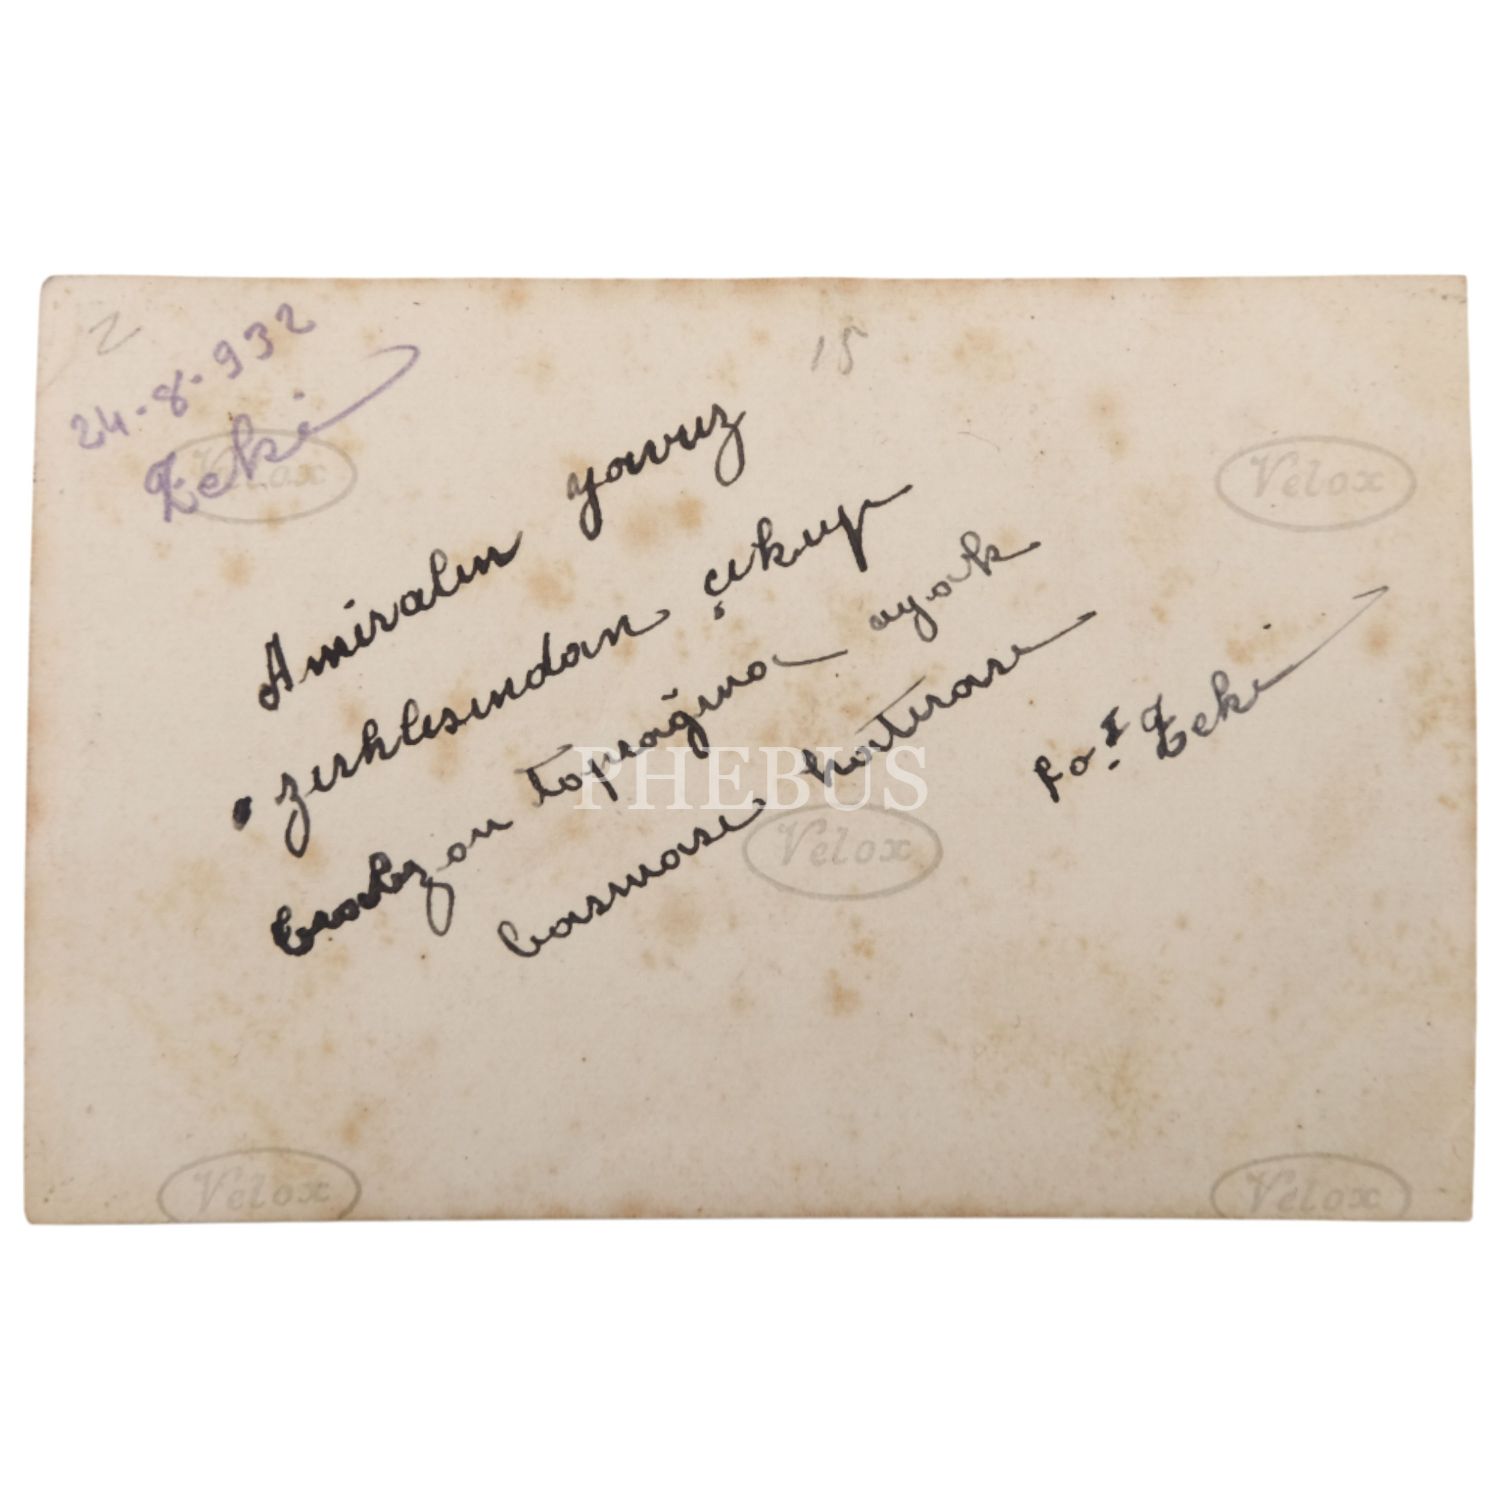 2
24-8-932
Zeki
15
Amiralın yavuz
zırhlısından çıkup
trabzon toprağına ayak
basması hatırası
Fo. Zeki
Velox
Velox
Velox
Velox
Velox
PHEBUS